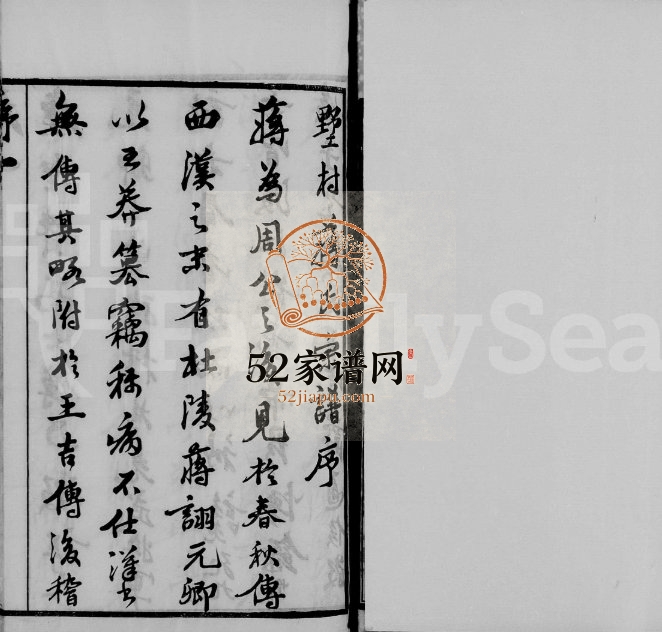 墅村蔣氏宗譜序
蔣為周公之後見於春秋傳
西漢之末有杜陵蔣詡元卿
以王莽篡竊稱病不仕漢書
無傳其略附於王吉傳後稽
序一
52家谱网
52jiapu.com
FamilySea